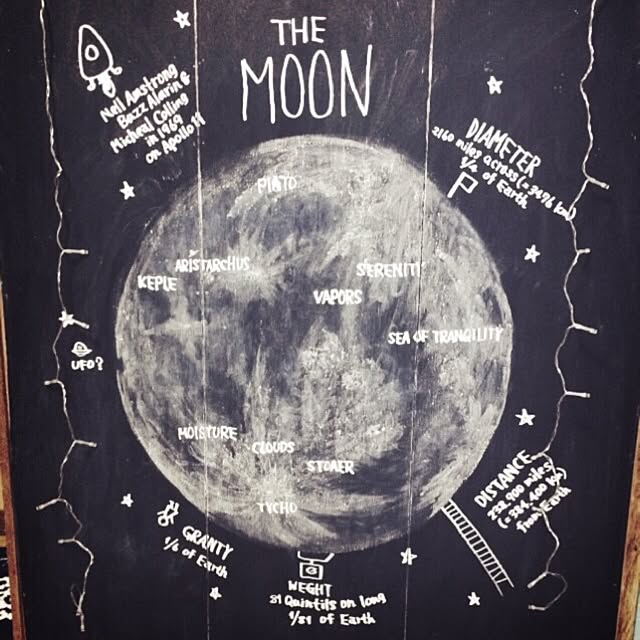 THE
MOON
Neil Amstrong
Bazz Alarin &
Micheal Colling
in 1969
on Apollo 11
DIAMETER
2160 miles across (=3476 km)
1/4 of Earth
PlATO
ARISTARCHUS
KEPLE
SERENITY
VAPORS
SEA OF TRANQILITY
UFO?
MOISTURE
CLOUDS
STOMER
TYCHO
DISTANCE
238,900 miles
(=384,400 km)
from Earth
GRANTY
1/6 of Earth
WEGHT
81 Quintils on long
1/81 of Earth